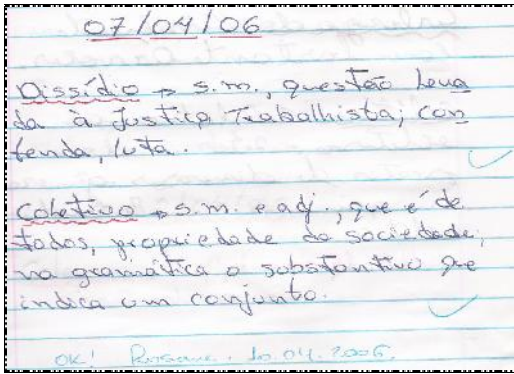 07/04/06
Dissídio → s.m., questão leva
da à Justiça Trabalhista; con
tenda, luta.
Coletivo → s.m. e adj., que é de
todos, propriedade da sociedade;
na gramática o substantivo que
indica um conjunto.
OK! 10.04.2006.